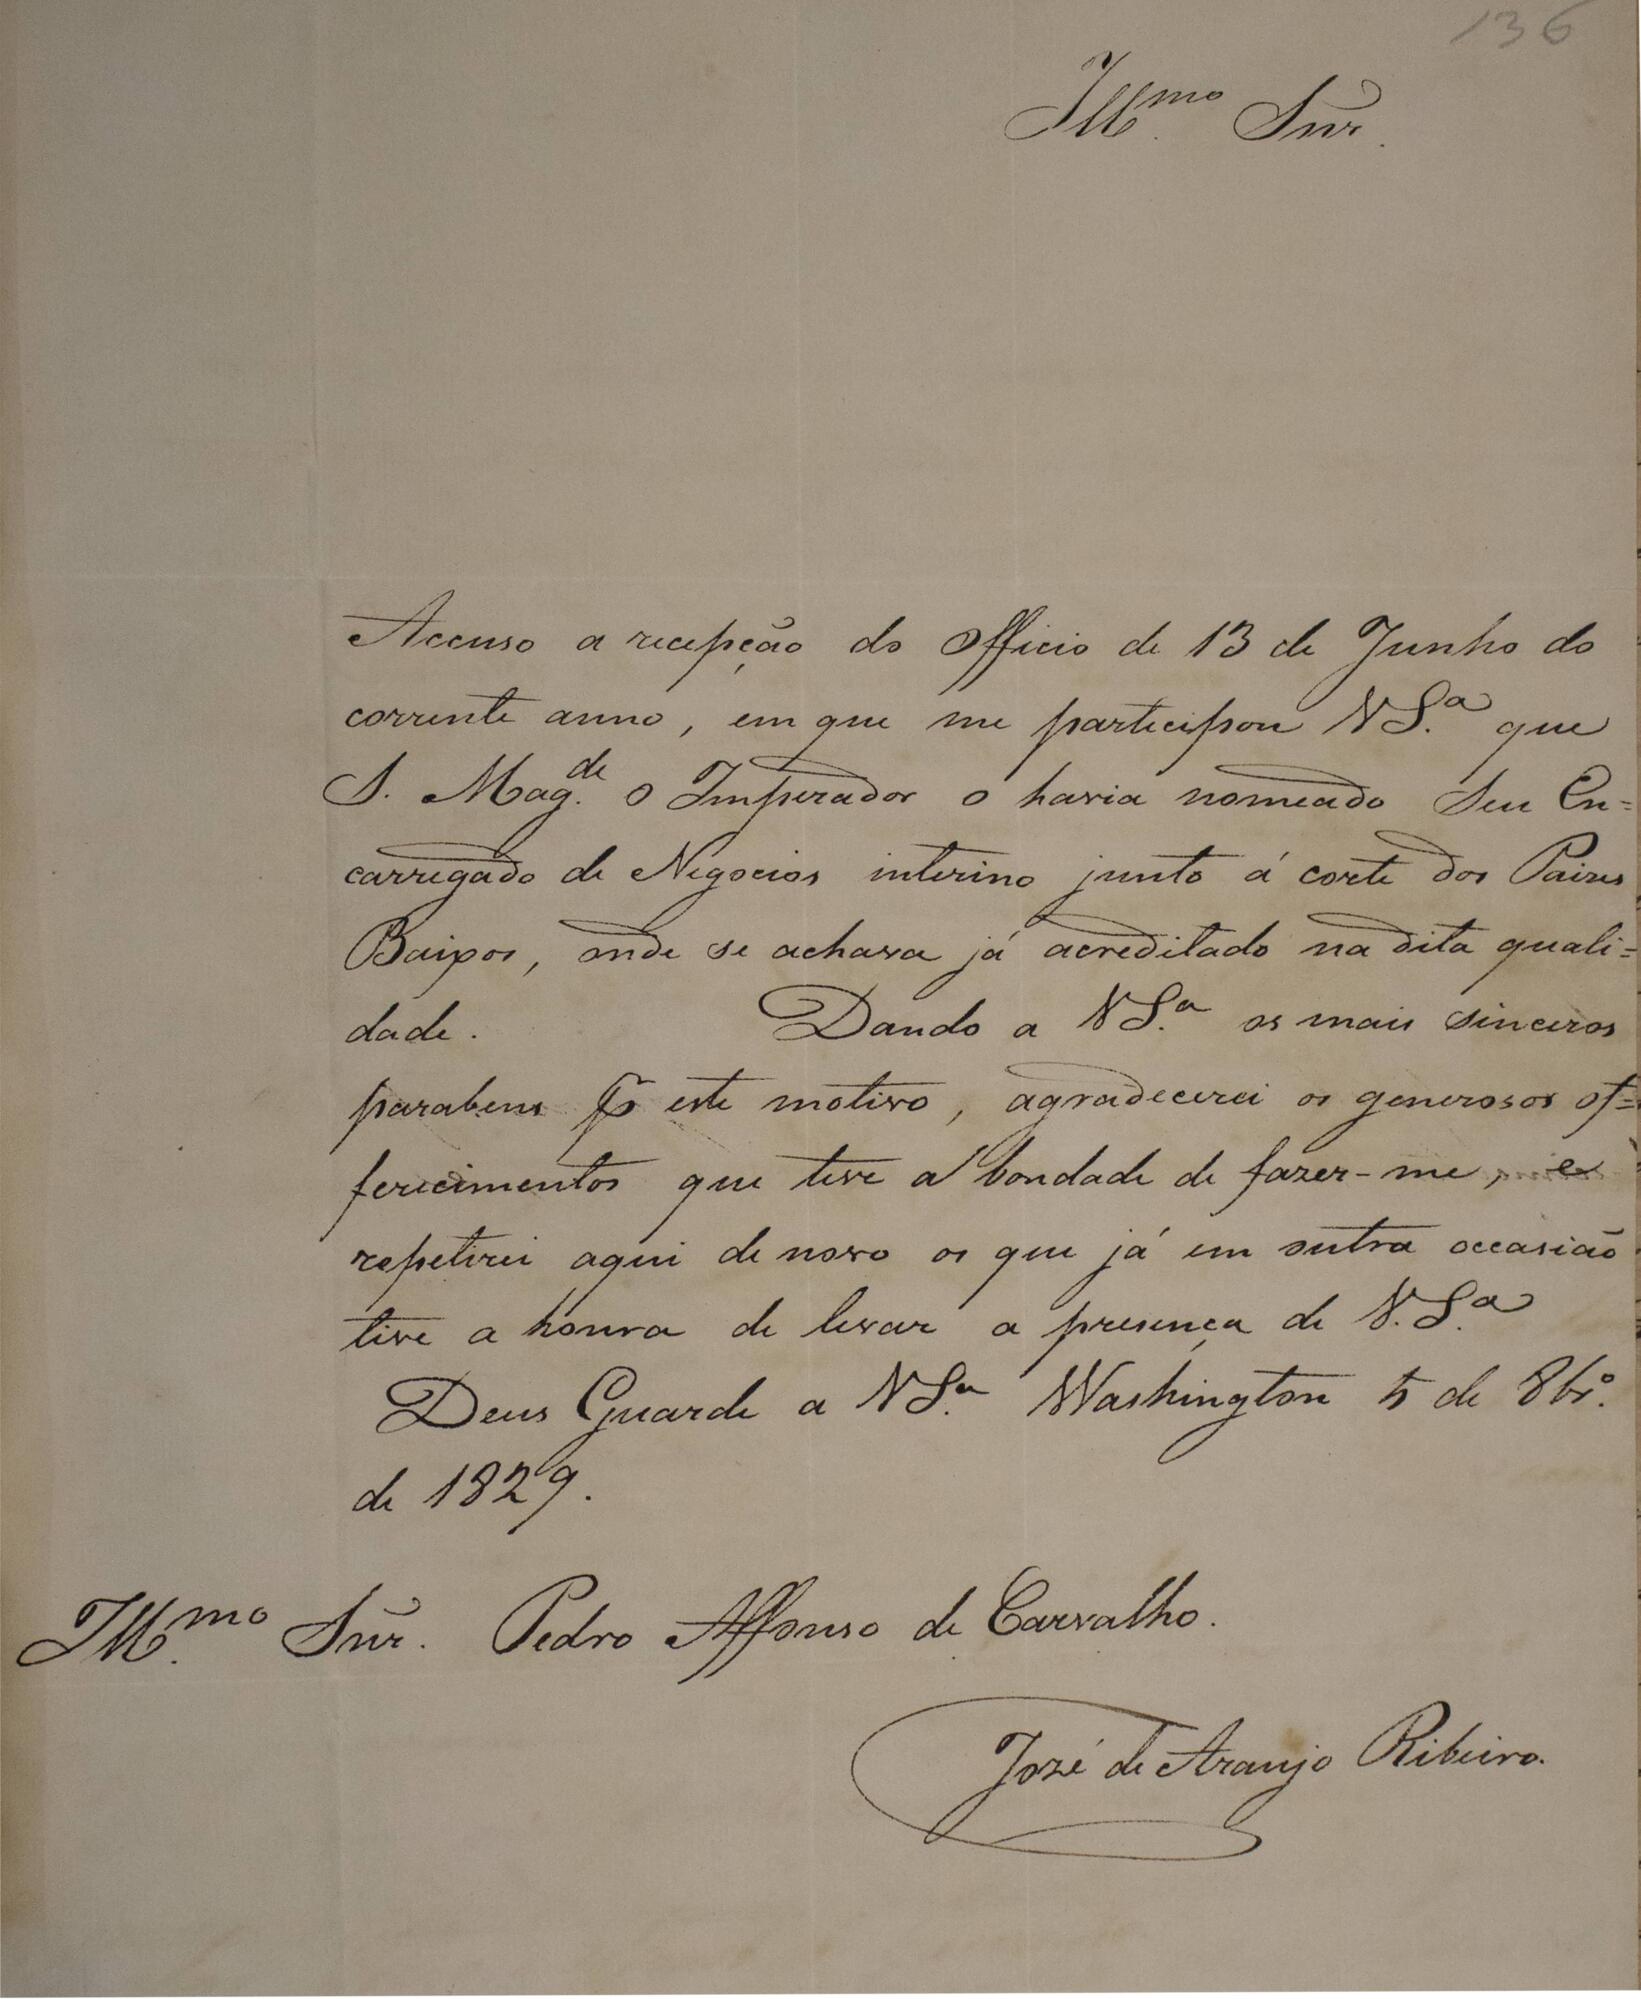 136
Ill.mo Snr.
Accuso a recepção do officio de 13 de Junho do
corrente anno, em que me participou VS.a que
S. Mag.de o Imperador o havia nomeado Seu En=
carregado de Negocios interino junto á corte dos Paizes
Baixos, onde se achava já acreditado na dita quali=
dade. Dando a VS.a os mais sinceros
parabens p este motivo, agradecerei os generosos of=
ferecimentos que teve a bondade de fazer-me, e
repetirei aqui de novo os que já em outra occasião
tive a honra de levar a presença de V.S.a
Deus Guarde a VS.a Washington 5 de 8br.o
de 1829.
Ill.mo Snr. Pedro Affonso de Carvalho.
José de Araujo Ribeiro.